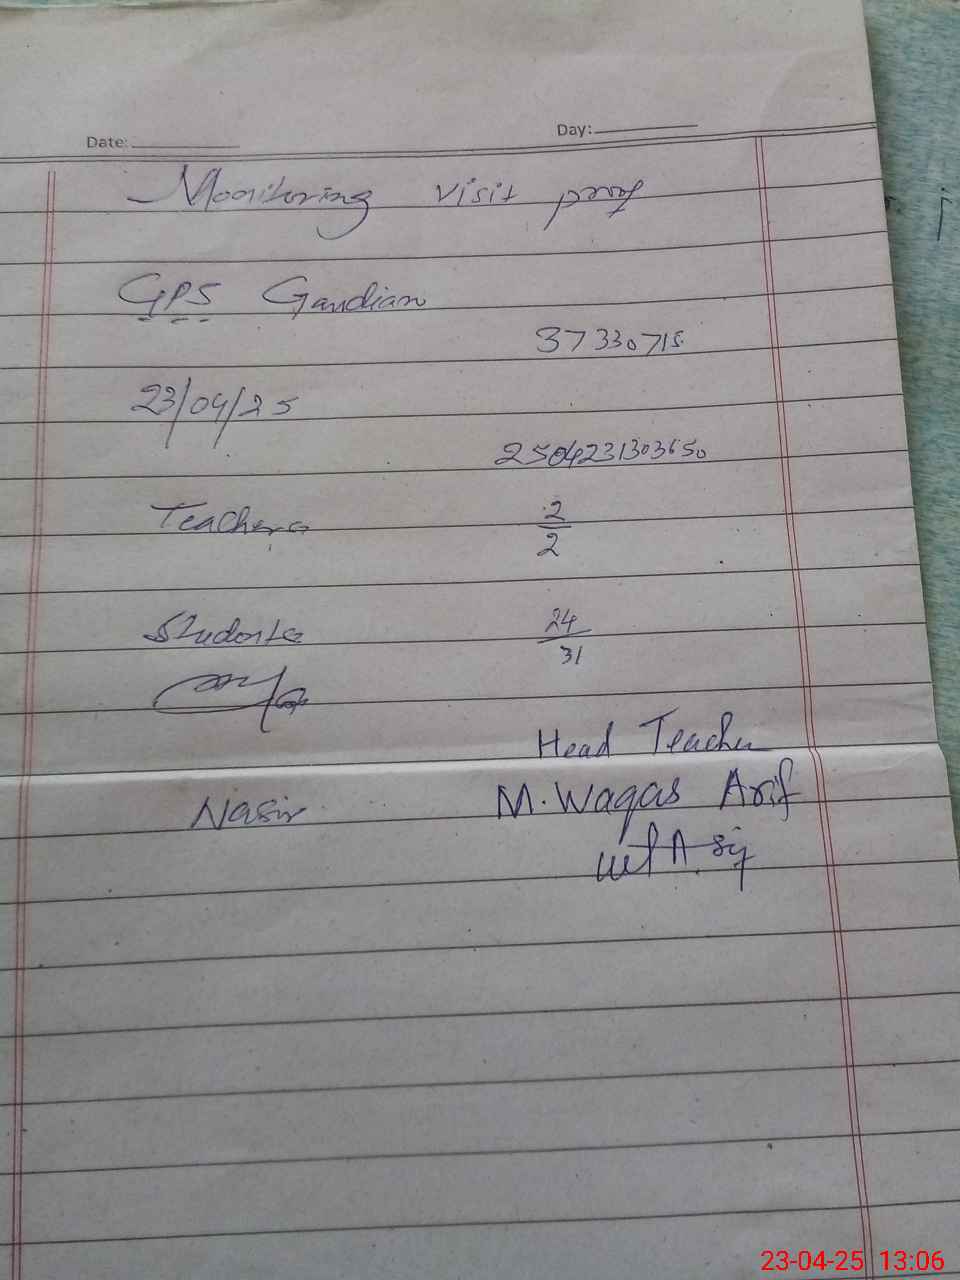 Date: Day:
Monitoring visit proof
GPS Gandian
37330715
23/04/25
2504231303650
Teachers 2/2
Students 24/31
Head Teacher
Nasir M. Waqas Arif
23-04-25 13:06